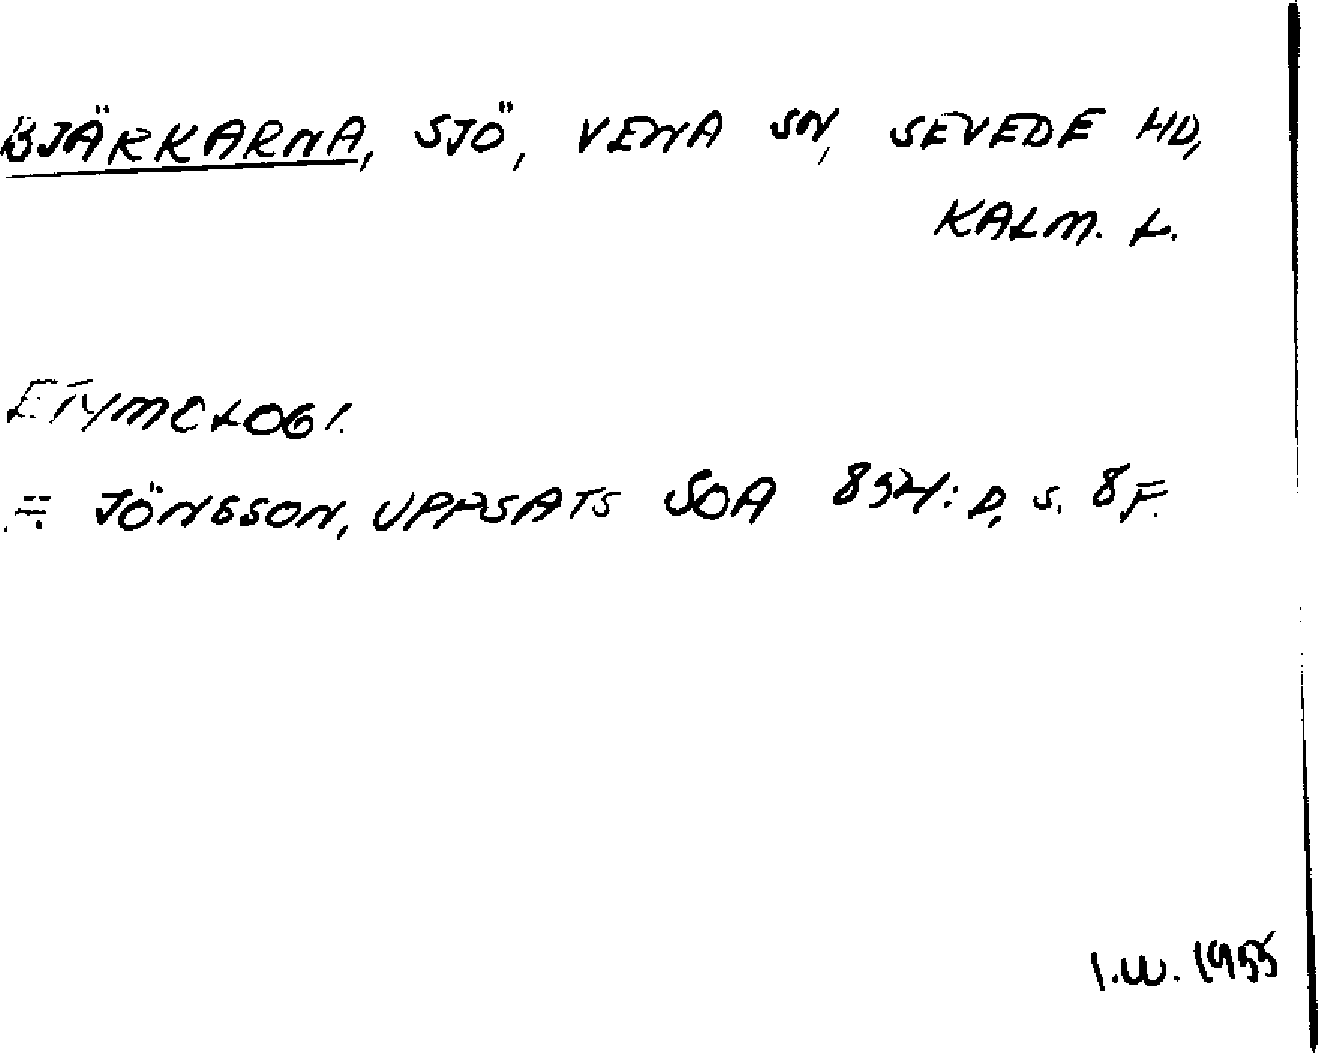 BJÄRKARNA, SJÖ, VENA SN, SEVEDE HD,
KALM. L.
ETYMOLOGI.
JÖNSSON, UPPSATS SOA : D, S. 8 F.
I.W. 1955